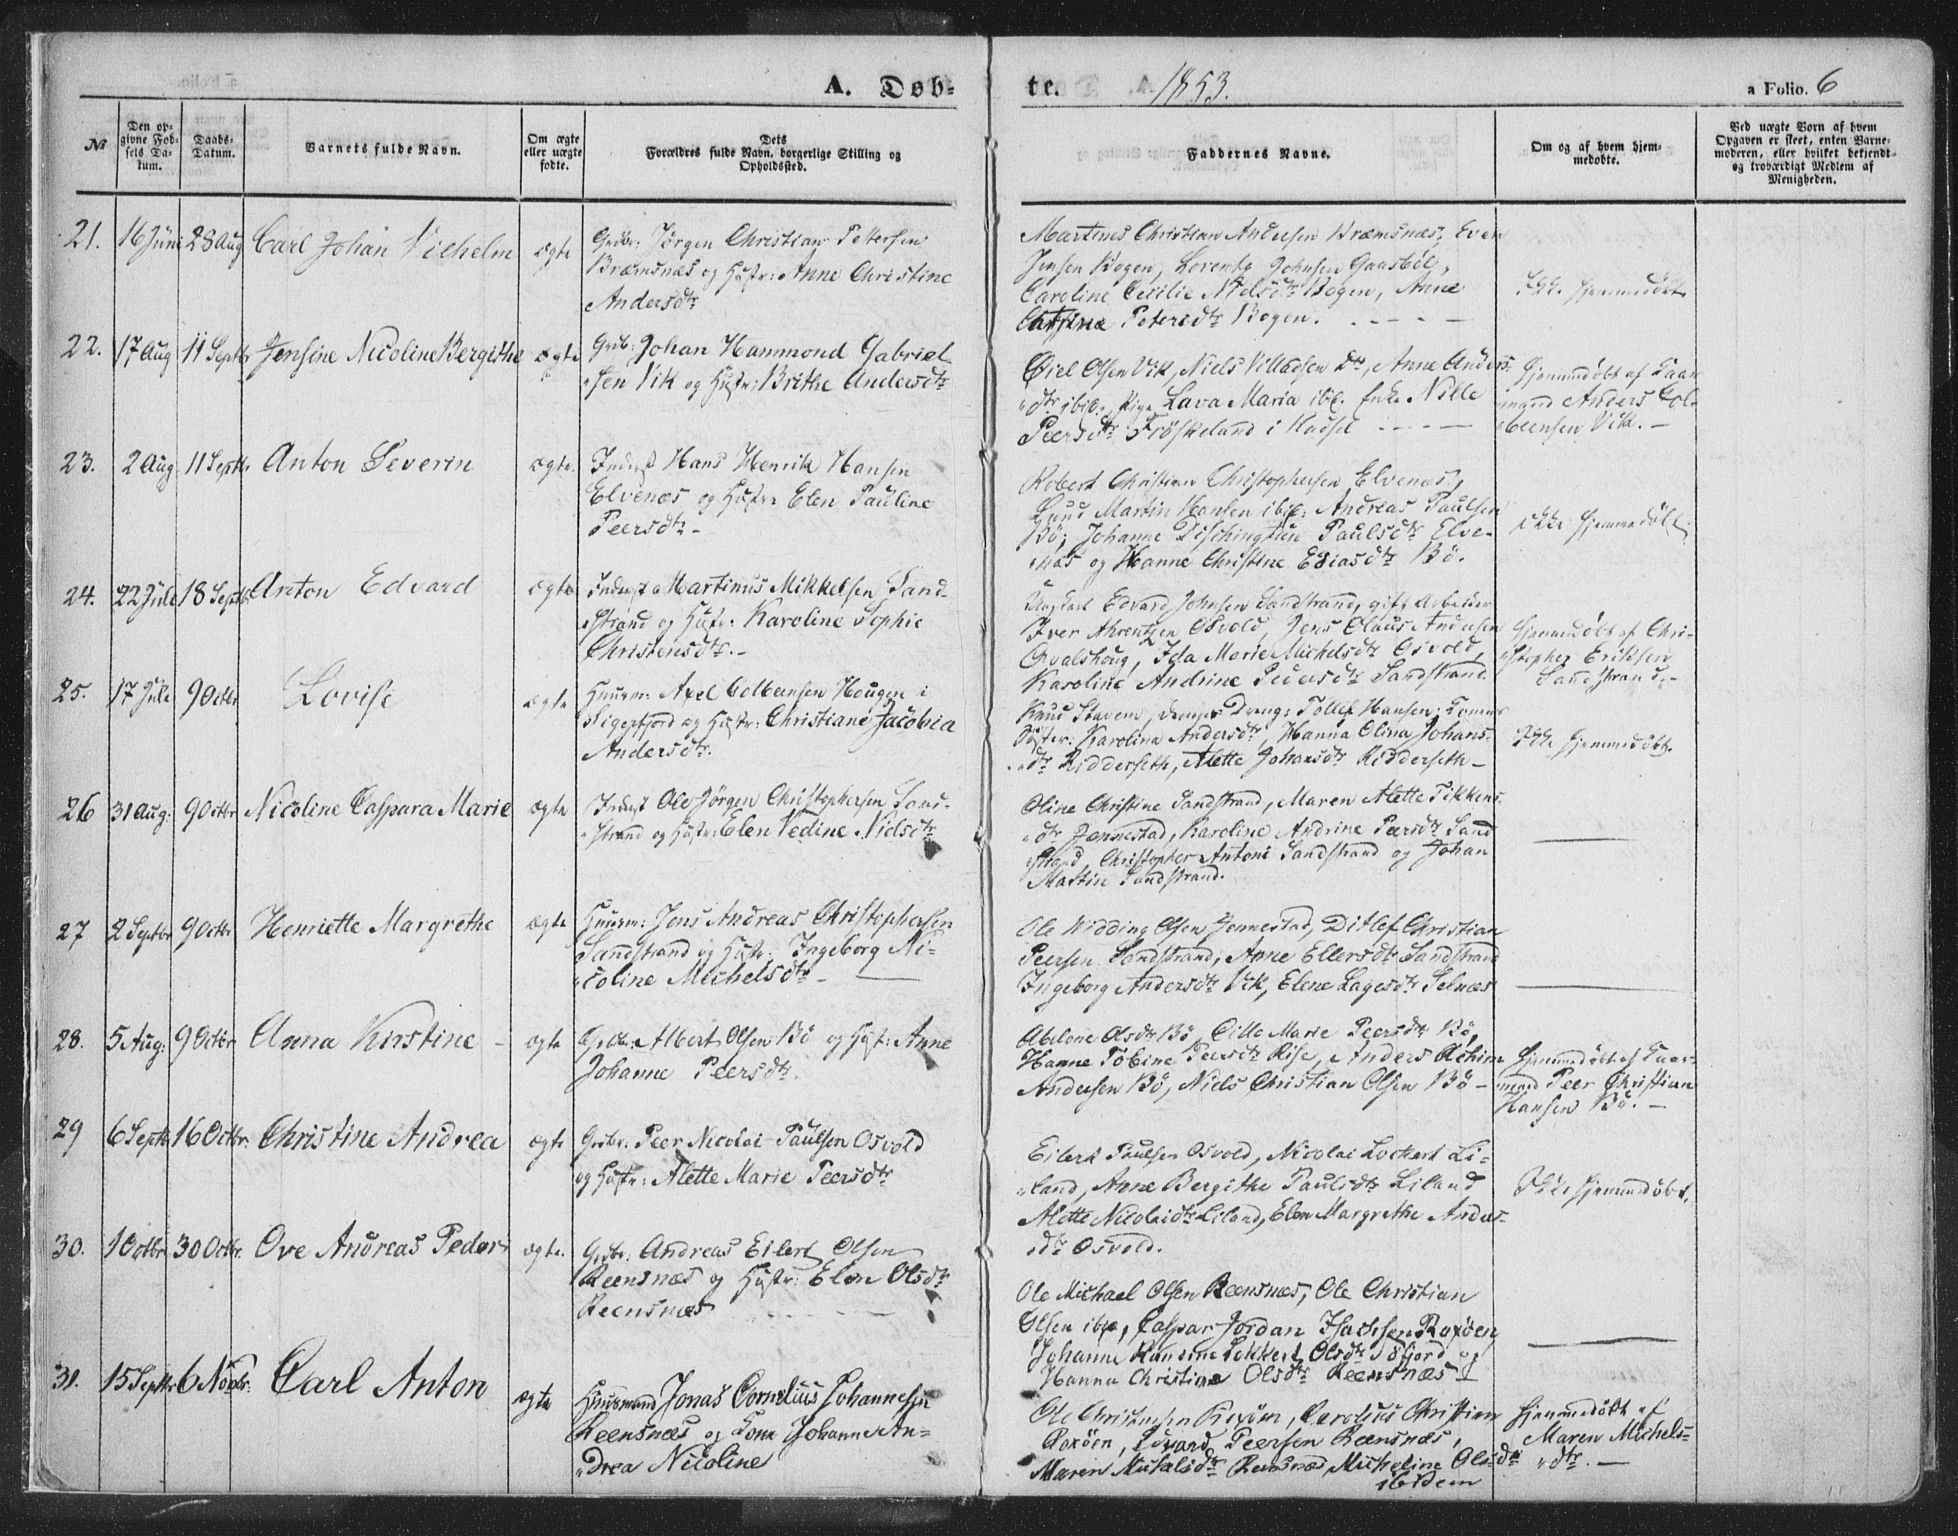 A. Døb-
te. 1853.
a Folio. 6
№
Den op-
givne Fød-
sels Da-
tum.
Daabs-
Datum.
Barnets fulde Navn.
Om ægte
eller uægte
fødte.
Dets
Forældres fulde Navn, borgerlige Stilling og
Opholdssted.
Faddernes Navne.
Om og af hvem hjem-
medøbte.
Ved uægte Børn af hvem
Opgaven er skeet, enten Barne-
moderen, eller hvilket bekjendt
og troværdigt Medlem af
Menigheden.
21. 16 Juni 28 Aug Carl Johan Vilhelm ægte
Grdbr: Jørgen Christian Pettersen
Bræmsnæs og Hustr: Anne Christine
Andersdtr
Martinus Christian Andersen Bræmsnæs, Even
Jensen Bogen, Lorentz Johnsen Gaasbøl,
Caroline Cecilie Nielsdtr Bogen, Anne
Petersdtr Bogen.
Ikke hjemmedøbt
22. 17 Aug 11 Septbr Jensine Nicoline Bergithe ægte
Grdb: Johan Hammond Gabriel-
sen Vik og Hustr: Brithe Andersdtr
Olsen Vik, Niels Villadsen do, Anne Anders-
dtr ibid. Pige Lava Maria ibd. Enke Nille
Peersdtr Frøskeland i Hadsel
Hjemmedøbt af Gaar-
mand Anders Col-
beensen Vik.
23. 2 Aug. 11 Septbr Anton Severin ægte
Inderst Hans Henrik Hansen
Elvenæs og Hustr: Elen Pauline
Peersdtr
Robert Christian Christophersen Elvenæs,
Martin Hansen ibid: Andreas Paulsen
Bø; Johanne Paulsdtr Elve-
næs og Hanne Christine Eliasdtr Bø.
ikke hjemmedøbt.
24. 22 Jule 18 Septbr Anton Edvard ægte
Inderst Martinus Mikkelsen Sand-
strand og Hustr: Karoline Sophie
Christensdtr.
Ungkarl Edvard Johnsen Sandstrand, gift Arbeider
Iver Ahrentzen Osvold, Jens Claus Andersen
Qvalshoug, Ida Marie Michelsdtr Osvold,
Karoline Andrine Pedersdtr Sandstrand
Hjemmedøbt af Chri-
stopher Eriksen
Sandstrand.
25. 17 Jule 9 Octbr Lovise ægte
Huusm: Axel Colbeensen Hougen i
Sigerfjord og Hustr: Christiane Jacobia
Andersdtr.
Knud Stavem, Dreng: Tollef Hansen:
Søster: Karolina Andersdtr, Hanna Olina Johans-
dtr Ridderseth, Alette Johansdtr Ridderseth
Ikke hjemmedøbt.
26 31 Aug: 9 Octbr Nicoline Caspara Marie ægte
Inderst Ole Jørgen Christophersen Sand-
strand og Hustr: Elen Vedine Nielsdtr
Oline Christine Sandstrand, Maren Alette
dtr Jennestad, Karoline Andrine Peersdtr Sand
strand, Christopher Antoni Sandstrand og Johan
Martin Sandstrand.
27 2 Septbr 9 Octbr Henriette Margrethe ægte
Huusm: Jens Andreas Christophersen
Sandstrand og Hustr: Ingeborg Ni-
coline Michelsdtr
Ole Widding Olsen Jennestad, Ditlef Christian
Peersen Sandstrand, Anne Ellersdtr Sandstrand
Ingeborg Andersdtr Vik, Elene Lagesdtr Selnæs
28. 5 Aug: 9 Octbr Anna Kirstine ægte
Grdbr: Albert Olsen Bø og Hustr: Anne
Johanne Peersdtr.
Abelone Olsdtr Bø, Cille Marie Peersdtr Bø,
Hanne Tobine Peersdtr Rise, Anders Achim
Andersen Bø, Niels Christian Olsen Bø
Hjemmedøbt af Gaar-
mand Peer Christian
Hansen Bø.
29 6 Septbr 16 Octbr. Christine Andrea ægte
Grdbr: Peer Nicolai Paulsen Osvold
og Hustr: Alette Marie Peersdtr
Eilert Paulsen Osvold, Nicolai Lockert Li-
land, Anne Bergithe Paulsdtr Liland
Alette Nicolaidtr Liland, Elen Margrethe Anders-
dtr Osvold.
Ikke hjemmedøbt.
30. 1 Octbr 30 Octbr. Ove Andreas Peder ægte.
Grdbr: Andreas Eilert Olsen
Reensnæs og Hustr: Elen Olsdtr
Reensnæs
Ole Michael Olsen Reensnæs, Ole Christian
Olsen ibid, Caspar Jordan Isachsen Roxøen,
Johanne Hansine Lokkert Olsdtr og
Hanna Christine Olsdtr Reensnæs
31. 15 Septbr 6 Novbr: Carl Anton ægte
Huusmand Jonas Cornelius Johannesen
Reensnæs og Kone Johanne An-
drea Nicoline
Ole Christensen Roxøen, Carolius Christian
Roxøen, Edvard Peersen Reensnæs,
Maren Michelsdtr Reensnæs, Micheline Olsdtr
ibidem
Hjemmedøbt af
Maren Michels-
dtr.